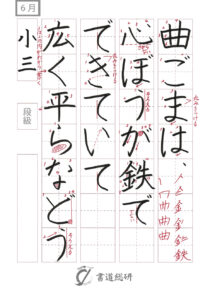 6月
曲ごまは、
心ぼうが鉄で
できていて
広く平らなどう
小三
段級
書道総研